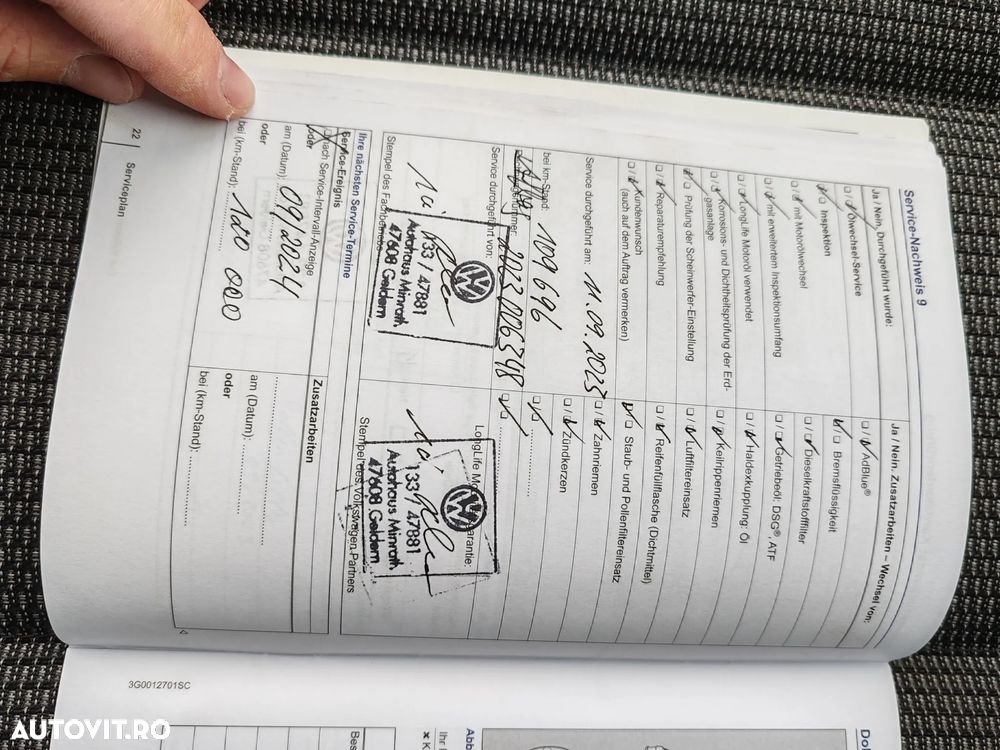 Service-Nachweis 9
Ja / Nein, Durchgeführt wurde:
Ölwechsel-Service
Inspektion
mit Motorölwechsel
mit erweitertem Inspektionsumfang
LongLife Motoröl verwendet
Korrosions- und Dichtheitsprüfung der Erd-
gasanlage
Prüfung der Scheinwerfer-Einstellung
Reparaturempfehlung
Kundenwunsch
(auch auf dem Auftrag vermerken)
Service durchgeführt am: 11.09.2023
bei km-Stand: 109 696
2023006348
Service durchgeführt von:
1133 / 47881
Autohaus Minrath
47608 Geldern
Stempel des Fachbetriebes
Ja / Nein, Zusatzarbeiten – Wechsel von:
AdBlue®
Bremsflüssigkeit
Dieselkraftstofffilter
Getriebeöl: DSG®, ATF
Haldexkupplung: Öl
Keilrippenriemen
Luftfiltereinsatz
Reifenfüllflasche (Dichtmittel)
Staub- und Pollenfiltereinsatz
Zahnriemen
Zündkerzen
LongLife M arantie:
133 / 47881
Autohaus Minrath
47608 Geldern
Stempel des Volkswagen Partners
Ihre nächsten Service-Termine
Service-Ereignis
nach Service-Intervall-Anzeige
oder
am (Datum): 09/2024
oder
bei (km-Stand): 120 000
Zusatzarbeiten
am (Datum):
oder
bei (km-Stand):
22 Serviceplan
3G0012701SC
AUTOVIT.RO